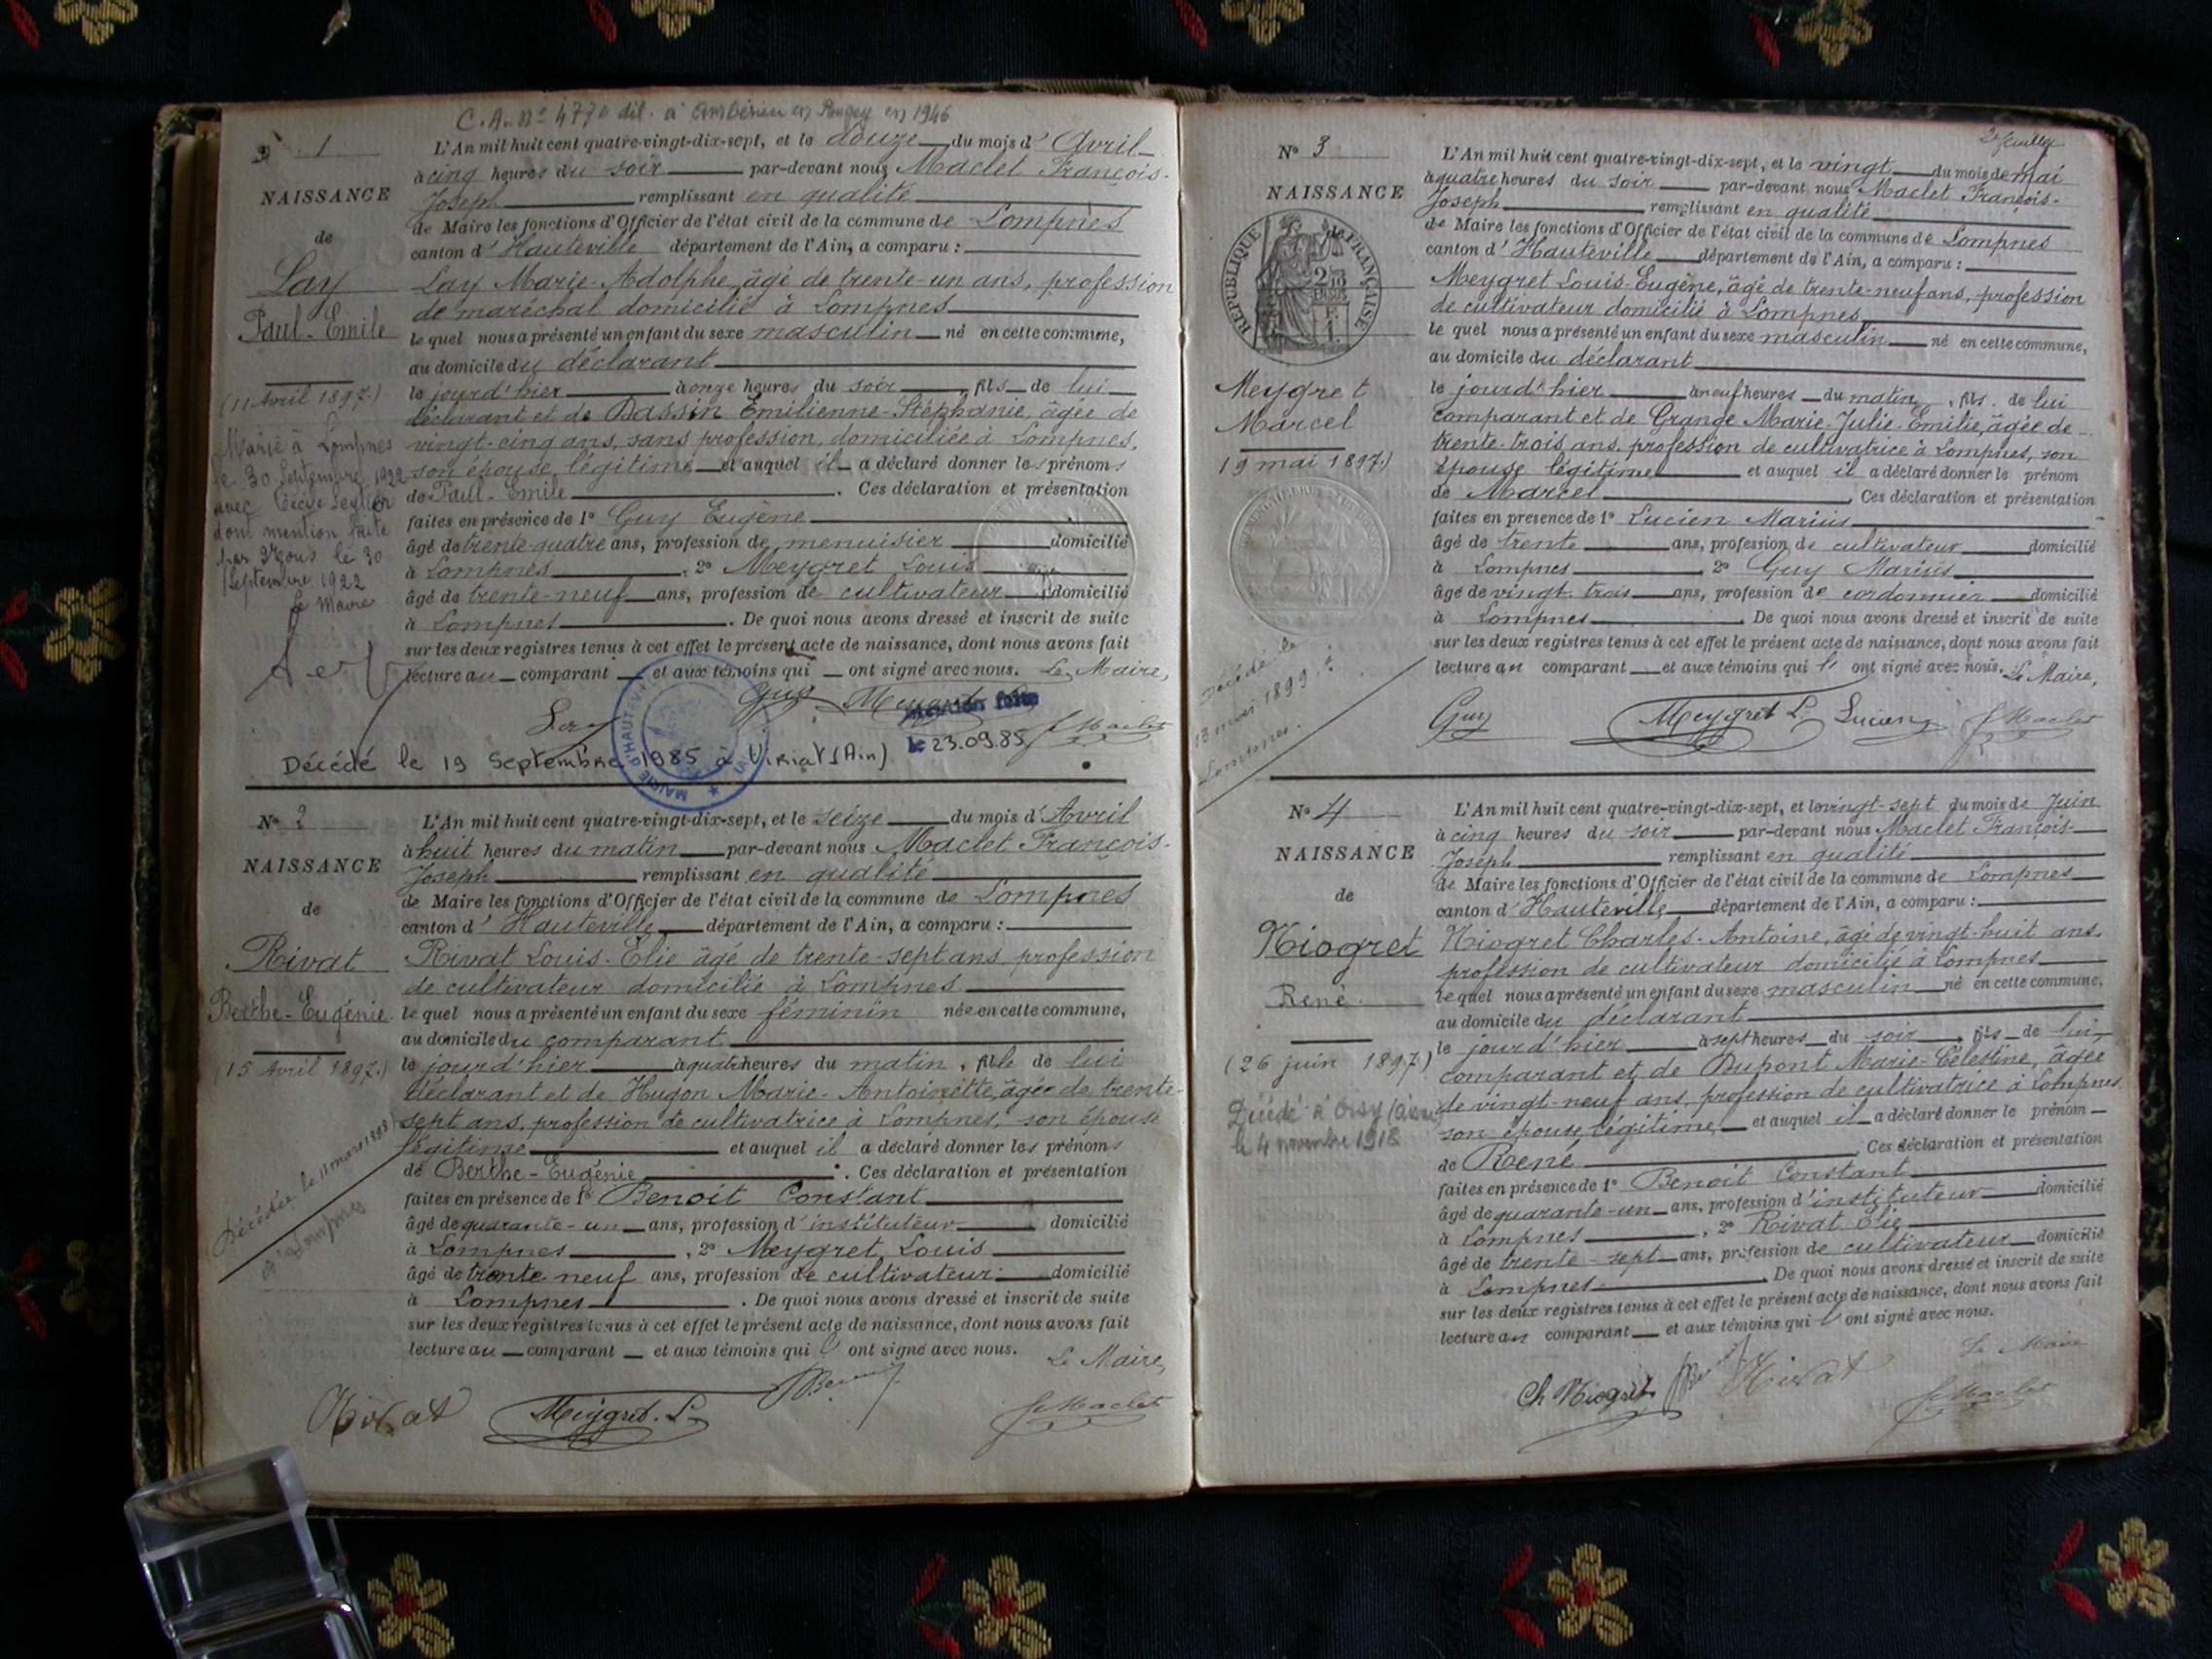 C.A. N° 4770 dél. à Ambérieu en Bugey en 1946
N° 1
NAISSANCE
de
Lay
Paul-Emile
(11 Avril 1897.)
Marié à Lompnes
le 30 Septembre 1922
avec Cécile
dont mention faite
par Nous le 30
Septembre 1922
Le Maire
L'An mil huit cent quatre-vingt-dix-sept, et le douze du mois d'Avril
à cinq heures du soir par-devant nous Maclet François-
Joseph remplissant en qualité
de Maire les fonctions d'Officier de l'état civil de la commune de Lompnès
canton d'Hauteville département de l'Ain, a comparu :
Lay Marie-Adolphe, âgé de trente-un ans, profession
de maréchal domicilié à Lompnes
le quel nous a présenté un enfant du sexe masculin né en cette commune,
au domicile du déclarant
le jourd'hier à onze heures du soir, fils de lui
déclarant et de Dassin Emilienne-Stéphanie, âgée de
vingt-cinq ans, sans profession, domiciliée à Lompnes,
son épouse légitime et auquel il a déclaré donner les prénoms
de Paul-Emile. Ces déclaration et présentation
faites en présence de 1° Guy Eugène
âgé de trente-quatre ans, profession de menuisier domicilié
à Lompnes, 2° Meygret Louis
âgé de trente-neuf ans, profession de cultivateur domicilié
à Lompnes. De quoi nous avons dressé et inscrit de suite
sur les deux registres tenus à cet effet le présent acte de naissance, dont nous avons fait
lecture au comparant et aux témoins qui ont signé avec nous. Le Maire,
Lay Guy Meygret f Maclet
MAIRIE D'HAUTEVILLE
Mention faite
le 23.09.85
Décédé le 19 Septembre 1985 à Viriat (Ain)
N° 2
NAISSANCE
de
Rivat
Berthe-Eugénie
(15 Avril 1897.)
Décédée le 11 mars 1898
à Lompnes
L'An mil huit cent quatre-vingt-dix-sept, et le seize du mois d'Avril
à huit heures du matin par-devant nous Maclet François-
Joseph remplissant en qualité
de Maire les fonctions d'Officier de l'état civil de la commune de Lompnes
canton d'Hauteville département de l'Ain, a comparu :
Rivat Louis-Elie âgé de trente-sept ans profession
de cultivateur domicilié à Lompnes
le quel nous a présenté un enfant du sexe féminin née en cette commune,
au domicile du comparant
le jourd'hier à quatre heures du matin, fille de lui
déclarant et de Hugon Marie-Antoinette, âgée de trente-
sept ans, profession de cultivatrice à Lompnes, son épouse
légitime et auquel il a déclaré donner les prénoms
de Berthe-Eugénie. Ces déclaration et présentation
faites en présence de 1° Benoit Constant
âgé de quarante-un ans, profession d'instituteur domicilié
à Lompnes, 2° Meygret Louis
âgé de trente-neuf ans, profession de cultivateur domicilié
à Lompnes. De quoi nous avons dressé et inscrit de suite
sur les deux registres tenus à cet effet le présent acte de naissance, dont nous avons fait
lecture au comparant et aux témoins qui ont signé avec nous. Le Maire,
Rivat Meygret. L. f Maclet
2e feuillet
N° 3
NAISSANCE
de
RÉPUBLIQUE FRANÇAISE
Meygret
Marcel
19 mai 1897)
Décédé le
13 1899 à
Lompnes.
L'An mil huit cent quatre-vingt-dix-sept, et le vingt du mois de mai
à quatre heures du soir par-devant nous Maclet François-
Joseph remplissant en qualité
de Maire les fonctions d'Officier de l'état civil de la commune de Lompnes
canton d'Hauteville département de l'Ain, a comparu :
Meygret Louis-Eugène, âgé de trente-neuf ans, profession
de cultivateur domicilié à Lompnes
le quel nous a présenté un enfant du sexe masculin né en cette commune,
au domicile du déclarant
le jourd'hier à neuf heures du matin, fils de lui
comparant et de Grange Marie-Julie-Emilie, âgée de
trente-trois ans, profession de cultivatrice à Lompnes, son
épouse légitime et auquel il a déclaré donner le prénom
de Marcel. Ces déclaration et présentation
faites en présence de 1° Lucien Marius
âgé de trente ans, profession de cultivateur domicilié
à Lompnes 2° Guy Marius
âgé de vingt-trois ans, profession de cordonnier domicilié
à Lompnes. De quoi nous avons dressé et inscrit de suite
sur les deux registres tenus à cet effet le présent acte de naissance, dont nous avons fait
lecture au comparant et aux témoins qui ont signé avec nous. Le Maire,
Guy Meygret L. Lucien f Maclet
N° 4
NAISSANCE
de
Niogret
René
(26 juin 1897)
Décédé à Orsy (Aisne)
le 4 novembre 1918
L'An mil huit cent quatre-vingt-dix-sept, et le vingt-sept du mois de Juin
à cinq heures du soir par-devant nous Maclet François-
Joseph remplissant en qualité
de Maire les fonctions d'Officier de l'état civil de la commune de Lompnes
canton d'Hauteville département de l'Ain, a comparu :
Niogret Charles-Antoine, âgé de vingt-huit ans,
profession de cultivateur domicilié à Lompnes
le quel nous a présenté un enfant du sexe masculin né en cette commune,
au domicile du déclarant
le jourd'hier à sept heures du soir, fils de lui,
comparant et de Dupont Marie-Célestine, âgée
de vingt-neuf ans, profession de cultivatrice à Lompnes
son épouse légitime, et auquel il a déclaré donner le prénom
de René. Ces déclaration et présentation
faites en présence de 1° Benoit Constant
âgé de quarante-un ans, profession d'instituteur domicilié
à Lompnes, 2° Rivat Elie
âgé de trente-sept ans, profession de cultivateur domicilié
à Lompnes. De quoi nous avons dressé et inscrit de suite
sur les deux registres tenus à cet effet le présent acte de naissance, dont nous avons fait
lecture au comparant et aux témoins qui ont signé avec nous.
Le Maire
Ch Niogret Rivat f Maclet